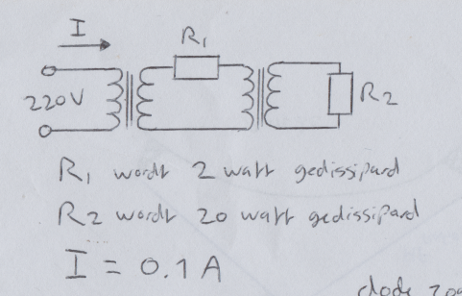 I
R1
220V
R2
R1 wordt 2 watt gedissipard
R2 wordt 20 watt gedissipard
I = 0.1 A
diode